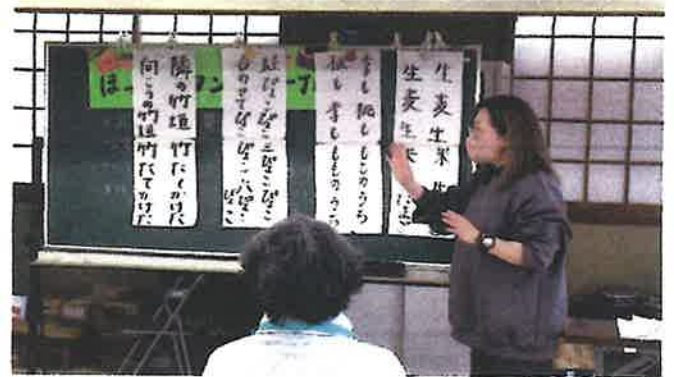 生麦 生米 生
生麦 生米
李も 桃も もものうち
桃も 李も もものうち
蛙ぴょこぴょこ三ぴょこぴょこ
ぴょこぴょこ六ぴょこぴょこ
隣の竹垣 竹たてかけた
向こうの竹垣竹たてかけた
ほっ